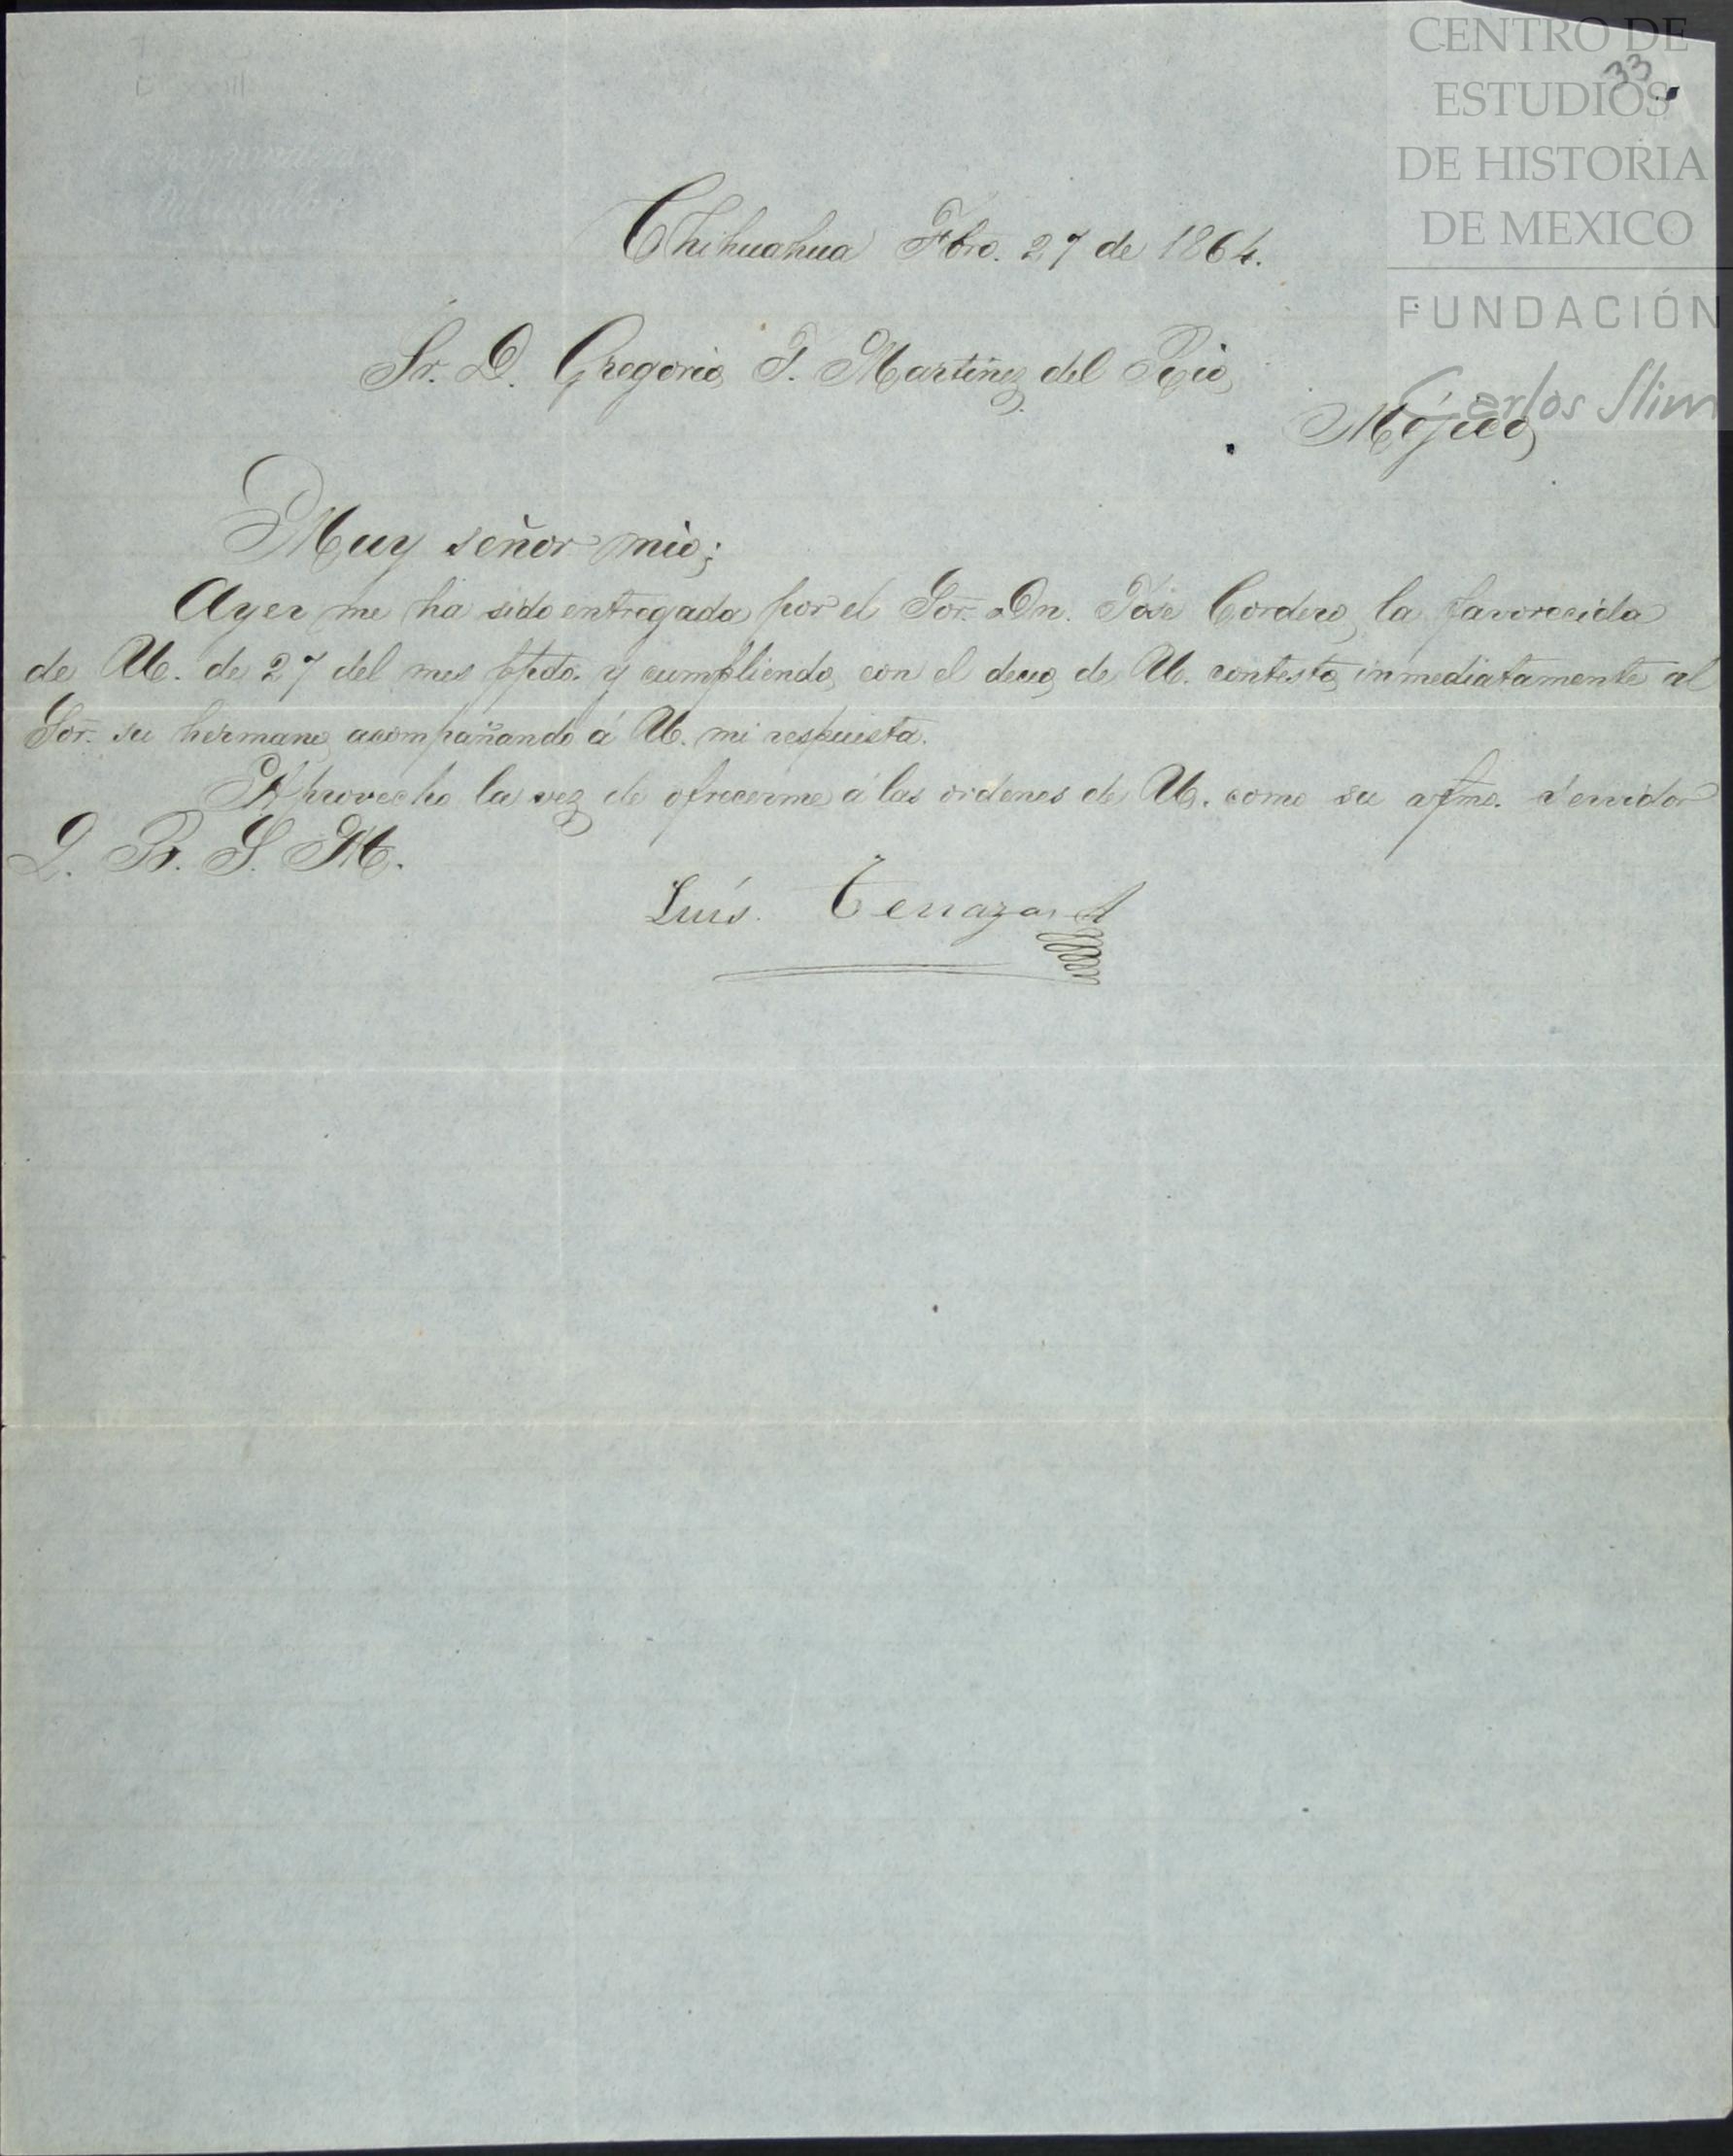 CENTRO DE
ESTUDIOS
DE HISTORIA
DE MEXICO
FUNDACIÓN
Carlos Slim
33
Chihuahua Fbro. 27 de 1864.
Sr. D. Gregorio J. Martinez del Rio
Méjico
Muy señor mio;
Ayer me ha sido entregada por el Sor. Dn. José Cordero la favorecida
de U. de 27 del mes ppdo. y cumpliendo con el deceo de U. contesto inmediatamente al
Sor. su hermano acompañando á U. mi respuesta.
Aprovecho la vez de ofrecerme á las ordenes de U. como su afmo. servidor
Q. B. S. M.
Luís. Terrazas